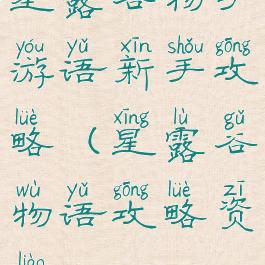 yóu yǔ xīn shǒu gōng
游语新手攻
lüè xīng lù gǔ
略（星露谷
wù yǔ gōng lüè zī
物语攻略资
liào